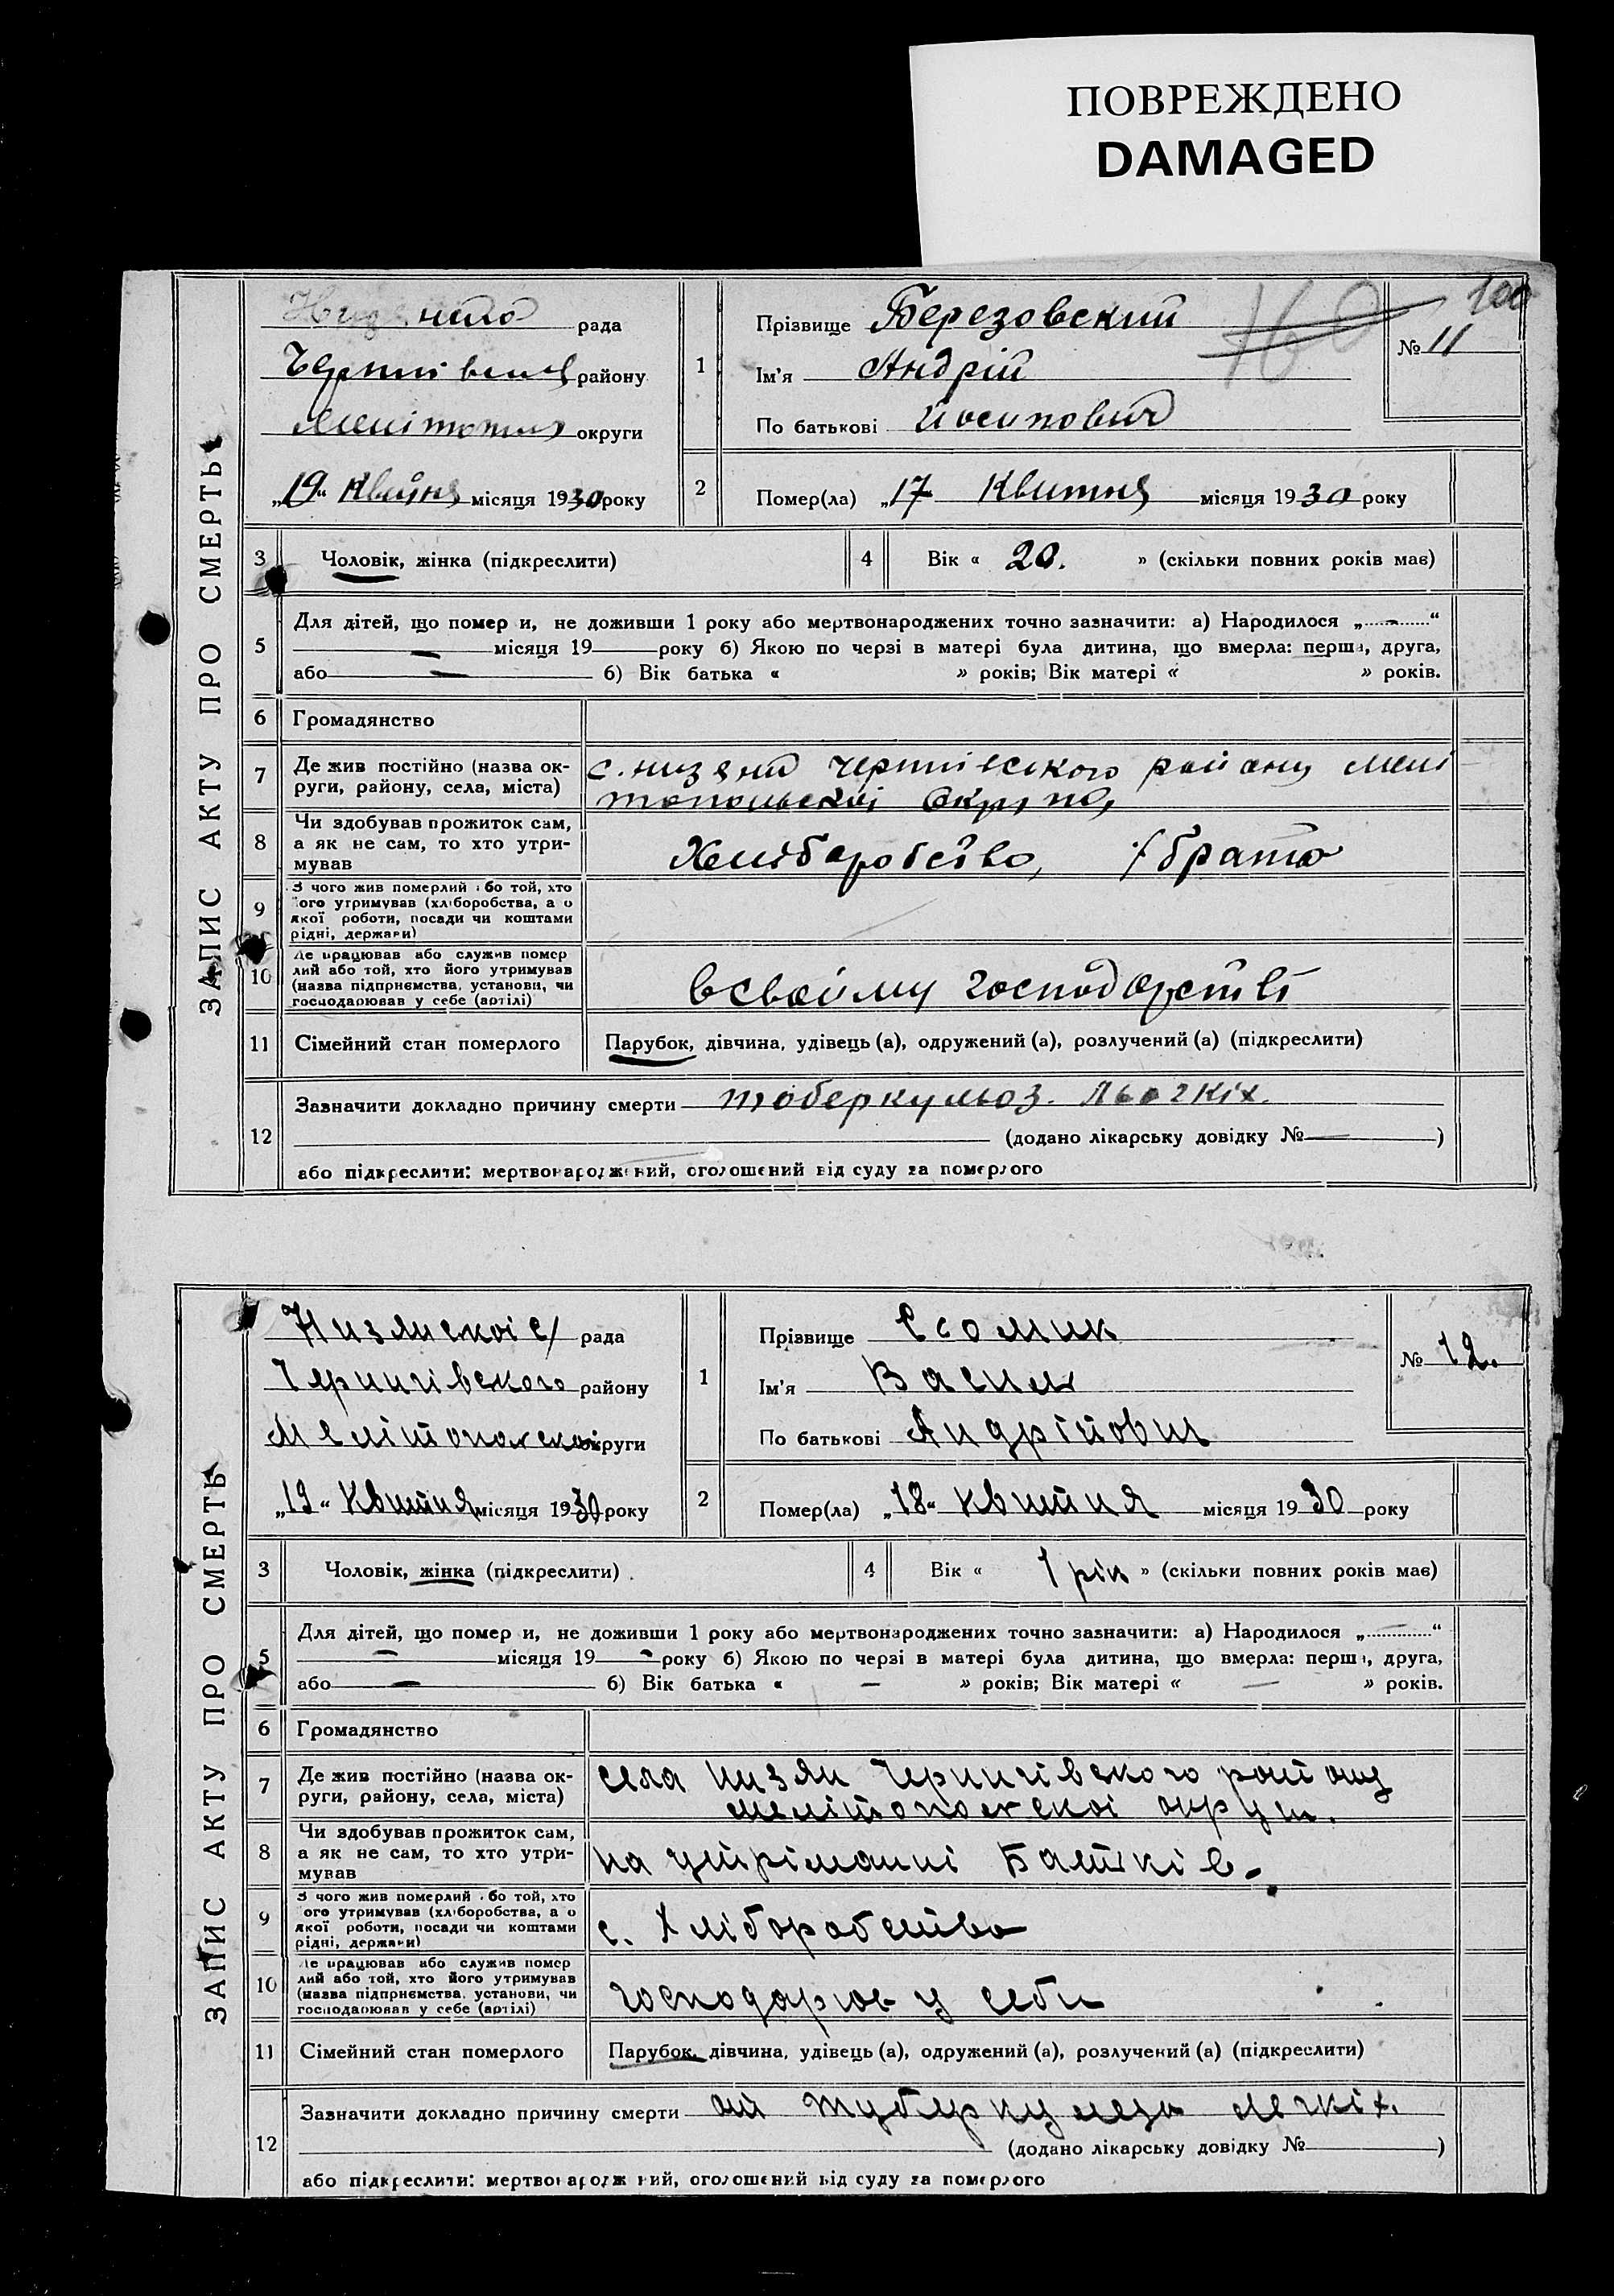 ПОВРЕЖДЕНО
DAMAGED
ЗАПИС АКТУ ПРО СМЕРТЬ
рада
району
округи
„19“ Квитня місяця 1930 року
1
Прізвище Березовский
Ім'я Андрій
По батькові Йосипович
160
100
№ 11
2
Помер(ла) „17 Квитня місяця 1930 року
3
Чоловік, жінка (підкреслити)
4
Вік « 20. » (скільки повних років має)
5
Для дітей, що помер и, не доживши 1 року або мертвонароджених точно зазначити: а) Народилося „—“
— місяця 19 року б) Якою по черзі в матері була дитина, що вмерла: перша, друга,
або — б) Вік батька « » років; Вік матері « » років.
6
Громадянство
7
Де жив постійно (назва ок-
руги, району, села, міста)
району Мелі
8
Чи здобував прожиток сам,
а як не сам, то хто утри-
мував
Хлiборобство, брата
9
З чого жив померлий або той, хто
його утримував (хліборобства, а о
якої роботи, посади чи коштами
рідні, держави)
10
Де працював або служив помер
лий або той, хто його утримував
(назва підприємства, установи, чи
господарював у себе (артілі)
в своїму господарстві
11
Сімейний стан померлого
Парубок, дівчина, удівець (а), одружений (а), розлучений (а) (підкреслити)
12
Зазначити докладно причину смерти тоберкульоз. Льогкіх.
(додано лікарську довідку № — )
або підкреслити: мертвонароджений, оголошений від суду за померлого
ЗАПИС АКТУ ПРО СМЕРТЬ
Низянскоі с/ рада
Чернигівского району
Мелітопольскоі округи
„19“ Квитня місяця 1930 року
1
Прізвище Єсомик
Ім'я Васил
По батькові Андрійович
№ 12.
2
Помер(ла) „18“ Квитня місяця 1930 року
3
Чоловік, жінка (підкреслити)
4
Вік « 1 рік » (скільки повних років має)
5
Для дітей, що помер и, не доживши 1 року або мертвонароджених точно зазначити: а) Народилося „—“
— місяця 19 — року б) Якою по черзі в матері була дитина, що вмерла: перша, друга,
або — б) Вік батька « — » років; Вік матері « — » років.
6
Громадянство
7
Де жив постійно (назва ок-
руги, району, села, міста)
села Низян Чернигівского району
мелітопольскоі округи.
8
Чи здобував прожиток сам,
а як не сам, то хто утри-
мував
на утріманні Батьків.
9
З чого жив померлий або той, хто
його утримував (хліборобства, а о
якої роботи, посади чи коштами
рідні, держави)
с. Хліборобства
10
Де працював або служив помер
лий або той, хто його утримував
(назва підприємства, установи, чи
господарював у себе (артілі)
господарюв у себи
11
Сімейний стан померлого
Парубок, дівчина, удівець (а), одружений (а), розлучений (а) (підкреслити)
12
Зазначити докладно причину смерти від легкіх.
(додано лікарську довідку № )
або підкреслити: мертвонароджений, оголошений від суду за померлого